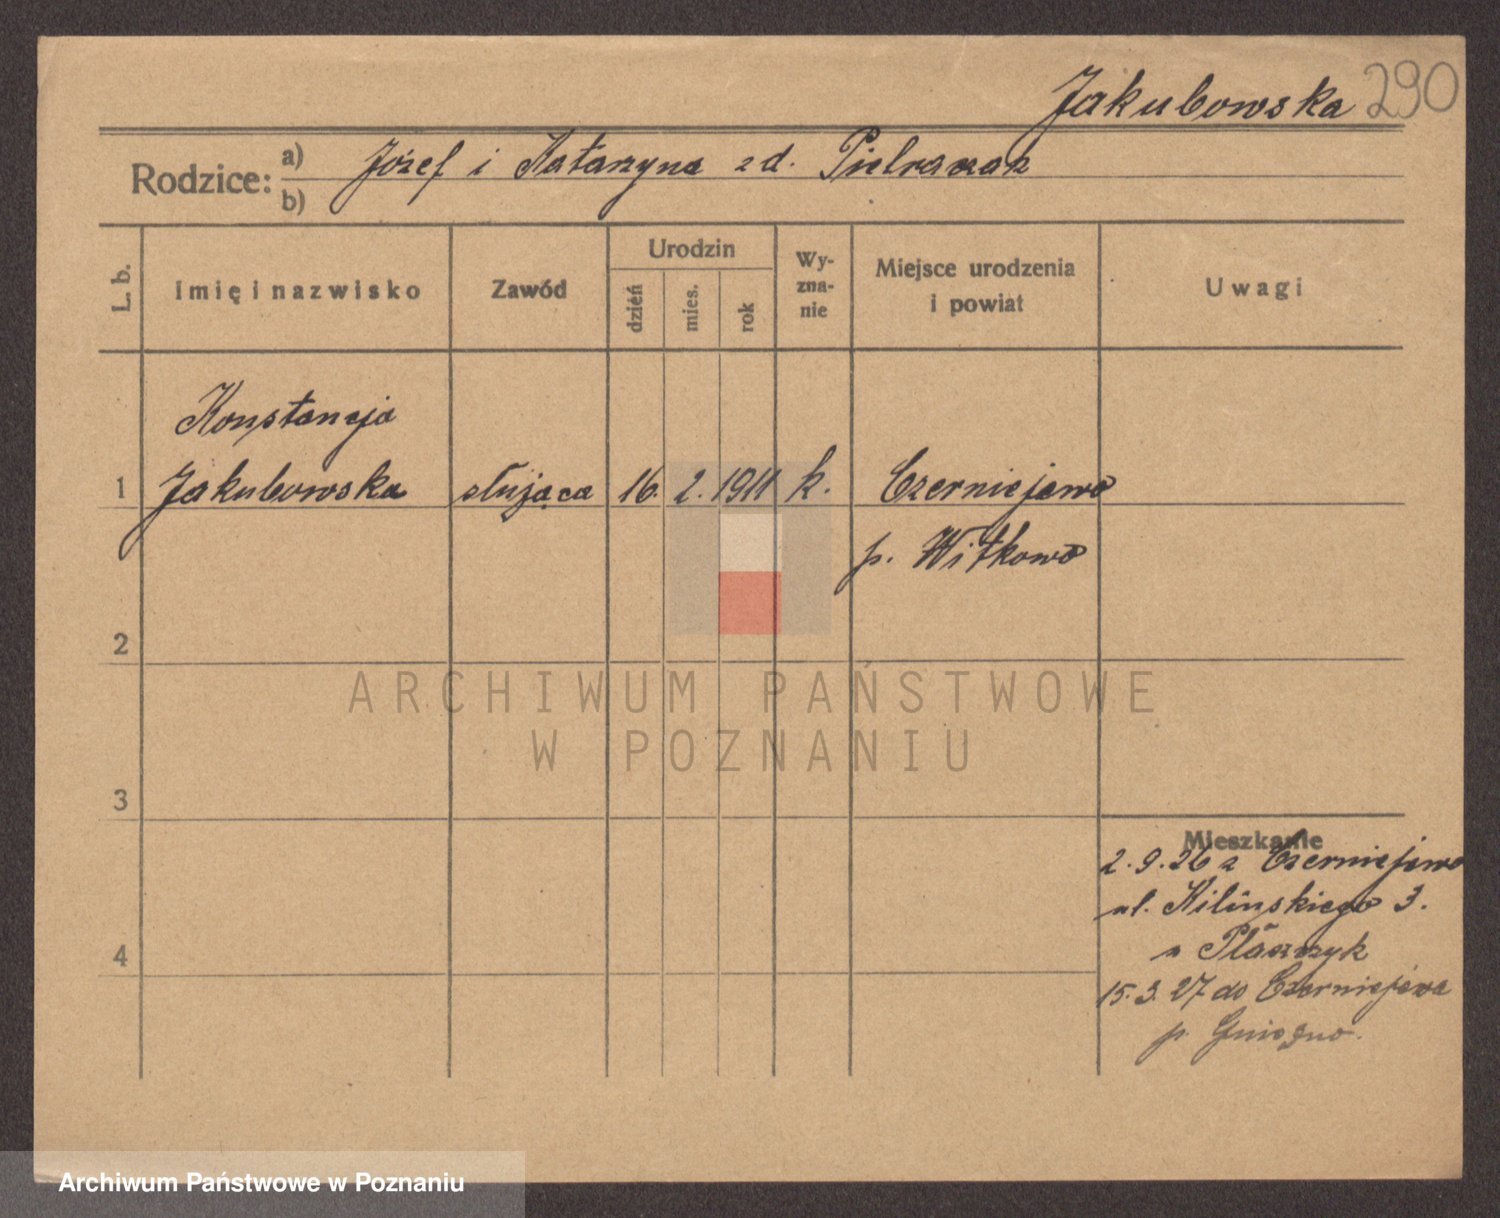 Jakubowska 290
Rodzice: a) b)
Józef i Katarzyna zd. Pietraszak
L. b.
Imię i nazwisko
Zawód
Urodzin
dzień
mies.
rok
Wy-
zna-
nie
Miejsce urodzenia
i powiat
Uwagi
Konstancja
1 Jakubowska służąca 16. 2. 1911 k. Czerniejewo
p. Witkowo
2
ARCHIWUM PAŃSTWOWE
W POZNANIU
3
Mieszkanie
2.9.26 z Czerniejewa
ul. Kilińskiego 3.
4
15.3.27 do Czerniejewa
p. Gniezno.
Archiwum Państwowe w Poznaniu